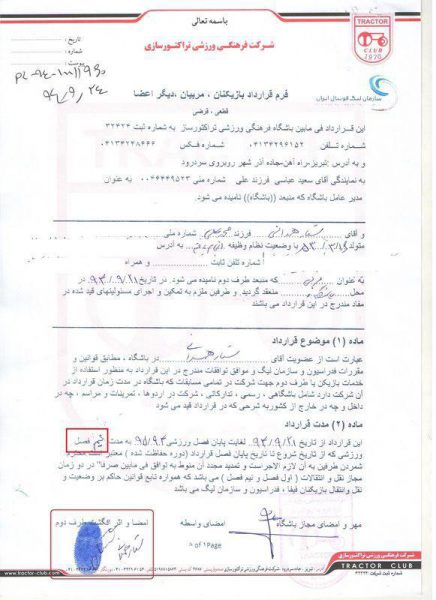 باسمه تعالی
TRACTOR
CLUB
1970
شرکت فرهنگی ورزشی تراکتورسازی
تاریخ :
شماره :
پیوست :
سازمان لیگ فوتبال ایران
فرم قرارداد بازیکنان ، مربیان ،دیگر اعضا
قطعی، قرضی
این قرارداد فی مابین باشگاه فرهنگی ورزشی تراکتورساز به شماره ثبت ۳۲۴۲۴
شماره تلفن ۰۴۱۳۴۲۹۶۱۵۲ شماره فکس ۰۴۱۳۴۲۴۸۶۶۶
و به آدرس :تبریز-راه آهن-جاده آذر شهر روبروی سردرود
به نمایندگی آقای سعید عباسی فرزند علی شماره ملی ۰۰۴۶۴۴۹۵۲۳ به عنوان
مدیر عامل باشگاه که منبعد ((باشگاه)) نامیده می شود.
و آقای ستار همدانی فرزند شماره ملی
متولد با وضعیت نظام وظیفه به آدرس
شماره تلفن ثابت و همراه
به عنوان مربی که منبعد طرف دوم نامیده می شود. در تاریخ ۹۳/۹/۲۱ در
محل باشگاه منعقد گردید. و طرفین ملزم به تمکین و اجرای مسئولیتهای قید شده در
مفاد مندرج در این قرارداد می باشند
ماده (۱) موضوع قرارداد
عبارت است از عضویت آقای ستار همدانی در باشگاه ، مطابق قوانین و
مقررات فدراسیون و سازمان لیگ و موافق توافقات مندرج در این قرارداد به منظور استفاده از
خدمات بازیکن یا طرف دوم جهت شرکت در تمامی مسابقات که باشگاه در مدت زمان قرارداد در
آن شرکت دارد شامل باشگاهی ، رسمی ، تدارکاتی ، شرکت در اردوها ، تمرینات و مراسم ، چه در
داخل و چه در خارج از کشوربه شرحی که در قرارداد قید می شود
ماده (۲) مدت قرارداد
این قرارداد از تاریخ ۹۳/۹/۲۱ لغایت پایان فصل ورزشی ۹۵/۹۴ به مدت نیم فصل
ورزشی که از تاریخ شروع تا تاریخ پایان فصل قرارداد (دوره حفاظت شده ) معتبر است محترم
شمردن طرفین به آن لازم الاجراست و تمدید مجدد آن منوط به توافق فی مابین صرفا" در دو زمان
مجاز نقل و انتقالات ( اول فصل و نیم فصل ) می باشد که همواره تابع قوانین حاکم بر وضعیت و
نقل وانتقال بازیکنان فیفا ، فدراسیون و سازمان لیگ می باشد
مهر و امضای مجاز باشگاه امضای واسطه امضا و اثر انگشت طرف دوم
شرکت فرهنگی ورزشی تراکتورسازی
TRACTOR CLUB
www.tractor-club.com